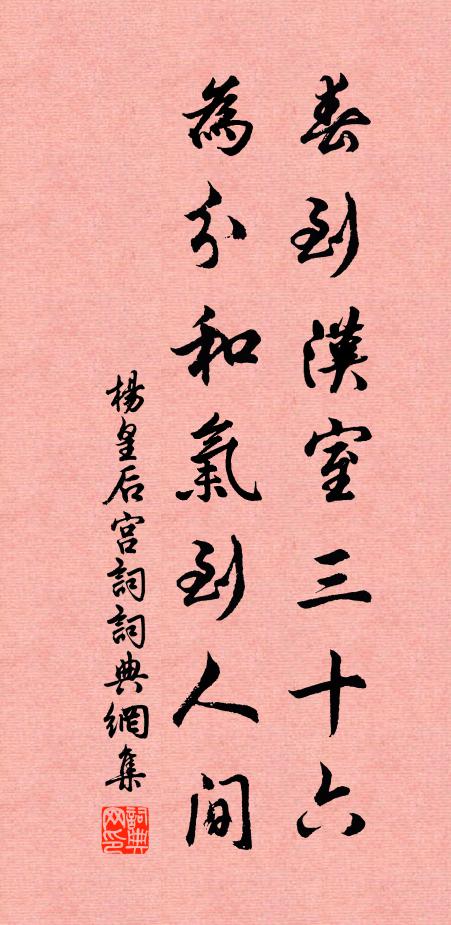 春到漢室三十六
為分和氣到人間
楊皇后宮詞詞典網集
詞典
网印